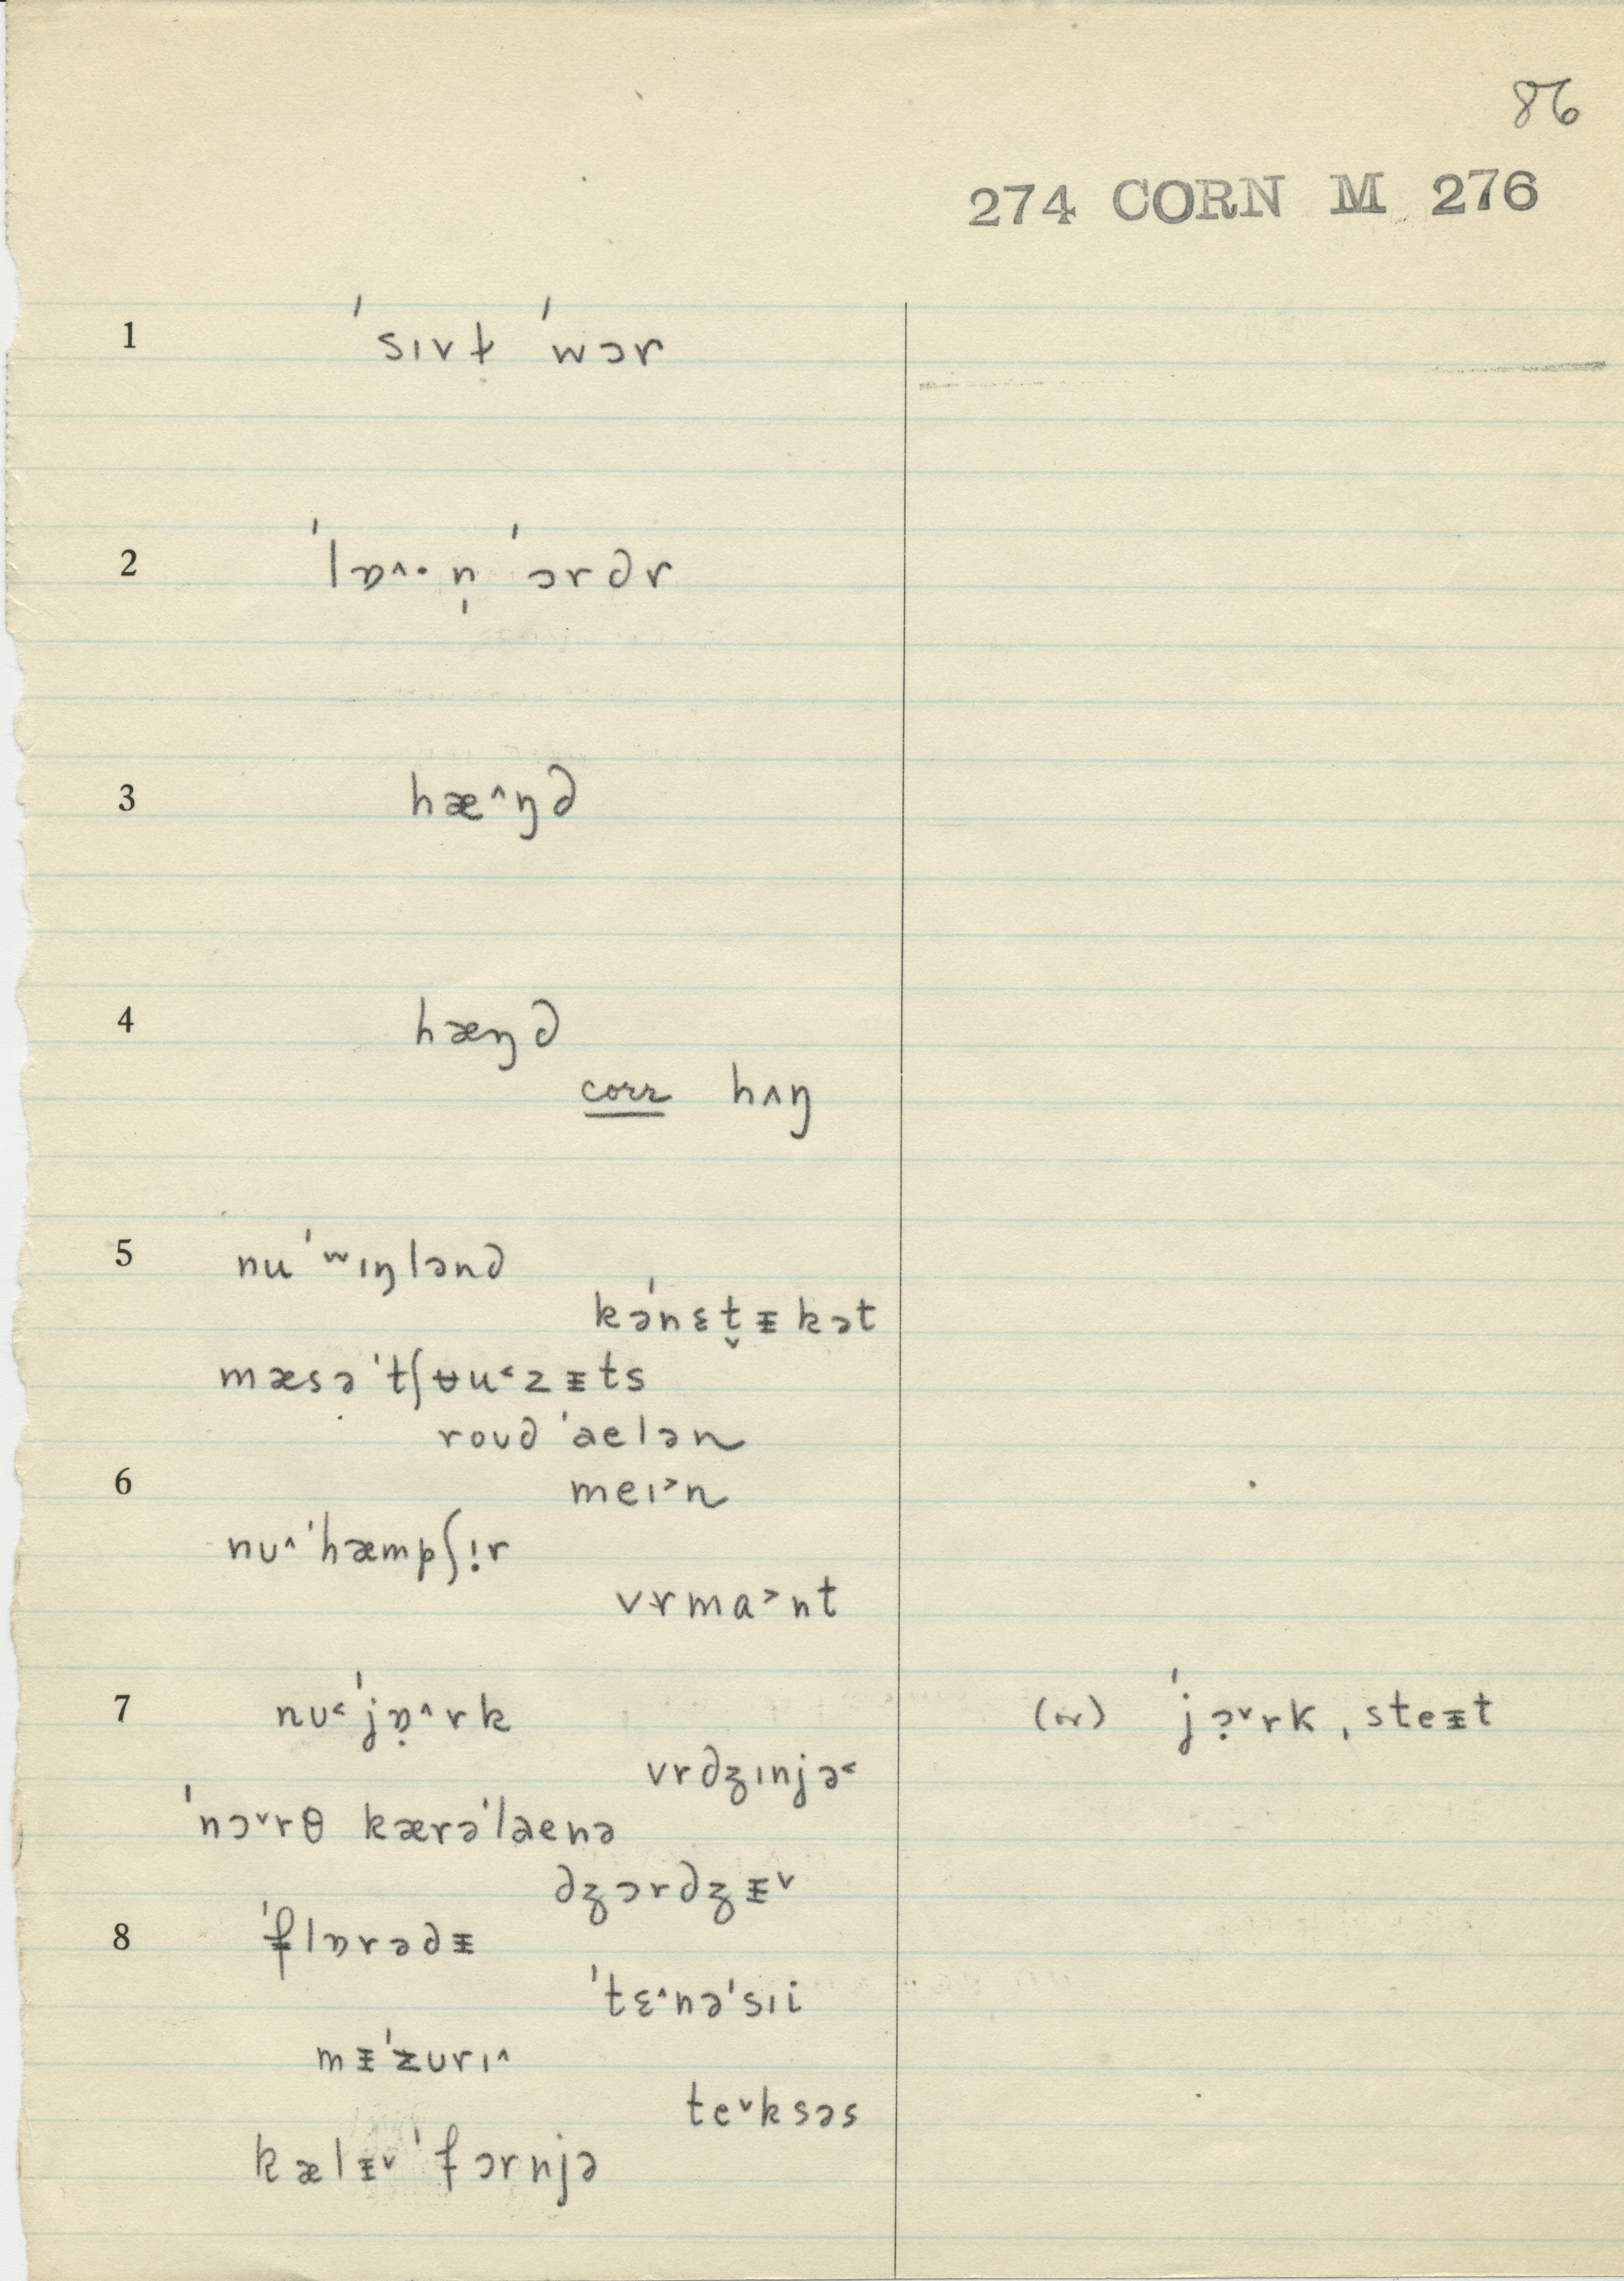 86
274 CORN M 276
1 ˈsɪvɫ ˈwɔr
2 ˈlɒ^·n̩ ˈɔrdr
3 hæ^ŋd
4 hæŋd
corr hʌŋ
5 nuˈʷɪŋlənd
kəˈnɛt̬ɪ̵kət
mæsəˈtʃʉu˂zɪ̵ts
roʊd ˈaelən
6 meɪ˃n
nʊ^ˈhæmpʃɪ̣r
vrma˃nt
7 nʊ˂ˈjɒ̣^rk (or) ˈjɔ̣ˇrk ˌsteɪ̵t
vrdʒɪnjə˂
ˈnɔˇrθ kærəˈlaenə
dʒɔrdʒɪ̵ˇ
8 ˈflɒrədɪ̵
ˈtɛ^nəˈsɪi
mɪ̵ˈzʊrɪ^
teˇksəs
kælɪ̵ˇˈfɔrnjə